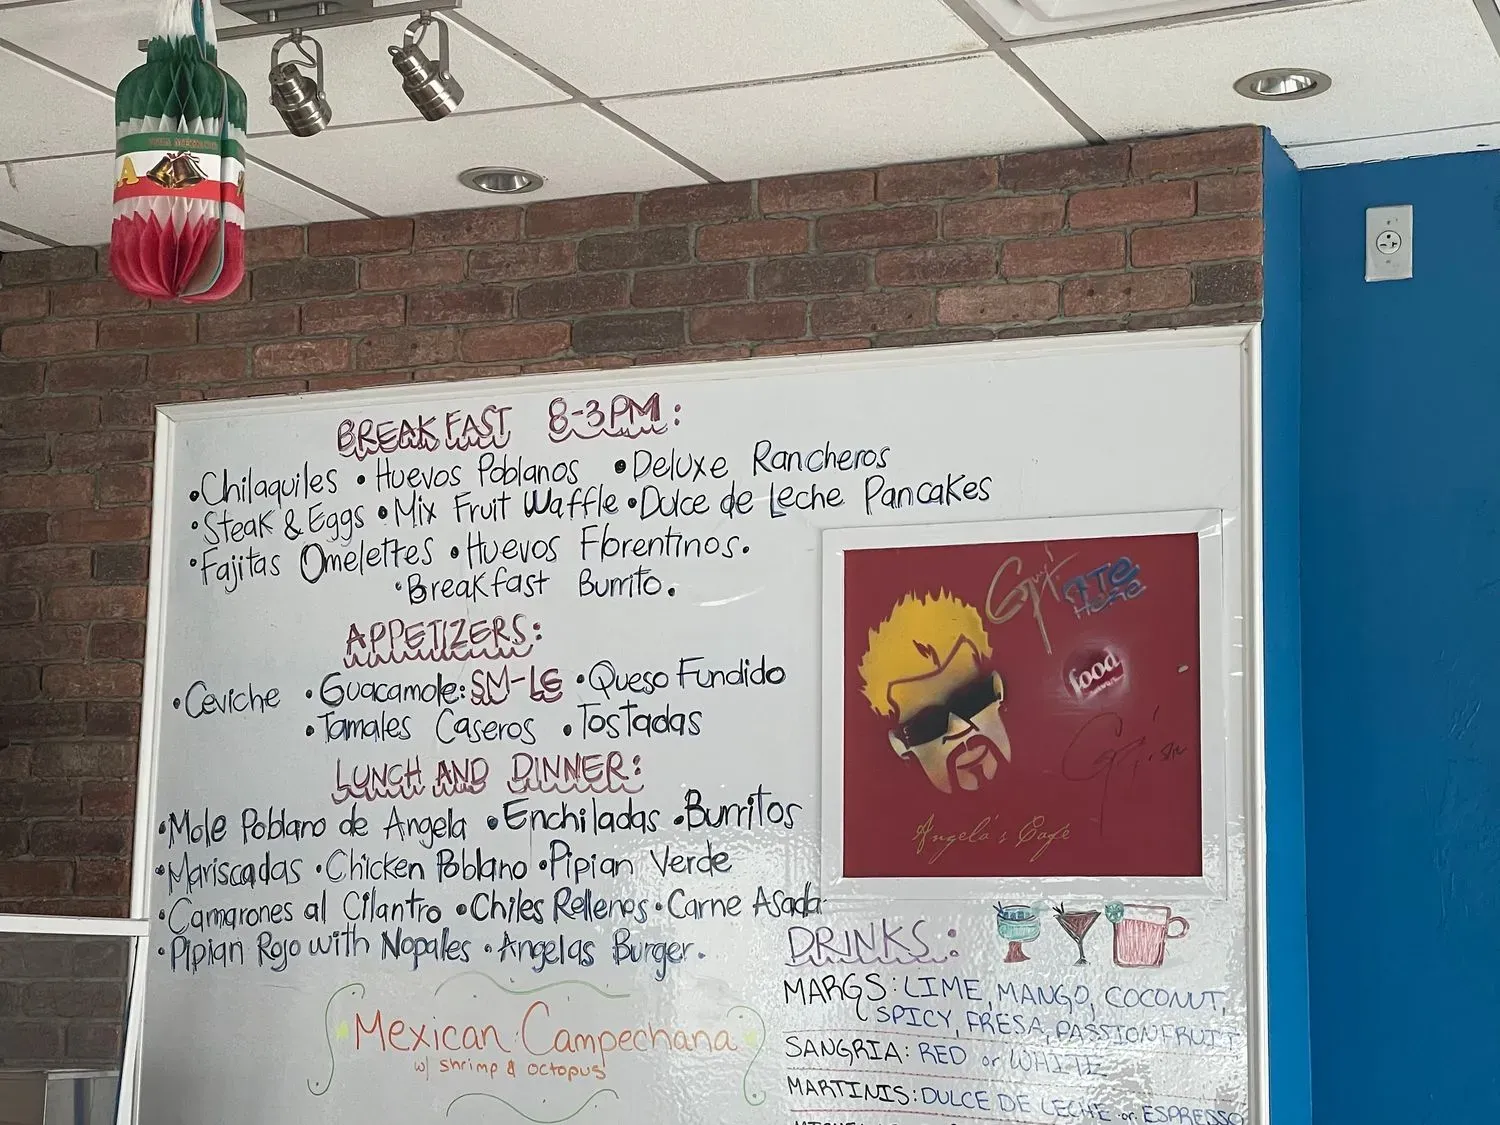 BREAKFAST 8-3PM:
•Chilaquiles •Huevos Poblanos •Deluxe Rancheros
•Steak & Eggs •Mix Fruit Waffle •Dulce de Leche Pancakes
•Fajitas Omelettes •Huevos Florentinos.
•Breakfast Burrito.
APPETIZERS:
•Ceviche •Guacamole: SM-LG •Queso Fundido
•Tamales Caseros •Tostadas
LUNCH AND DINNER:
•Mole Poblano de Angela •Enchiladas •Burritos
•Mariscadas •Chicken Poblano •Pipian Verde
•Camarones al Cilantro •Chiles Rellenos •Carne Asada
•Pipian Rojo with Nopales •Angelas Burger.
Mexican Campechana
w/ shrimp & octopus
Guy
Ate
Here
food
Angela's Café
DRINKS:
MARGS: LIME, MANGO, COCONUT,
SPICY, FRESA, PASSIONFRUIT
SANGRIA: RED or WHITE
MARTINIS: DULCE DE LECHE or ESPRESSO